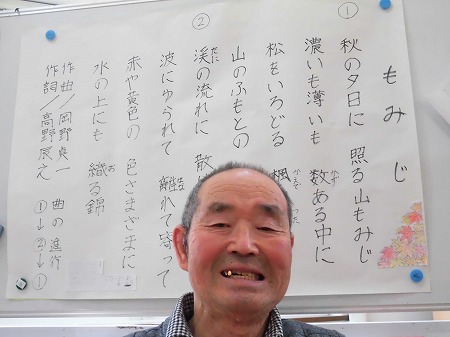 もみじ
① 秋の夕日に 照る山もみじ
濃いも薄いも 数ある中に
かず
松をいろどる 楓
かえで つた
山のふもとの
② 渓の流れに 散
たに
波にゆられて 離れて寄って
はな
赤や黄色の 色さまざまに
水の上にも 織る錦
お
作曲/岡野貞一 曲の進行
作詞/高野辰之 ①→②→①